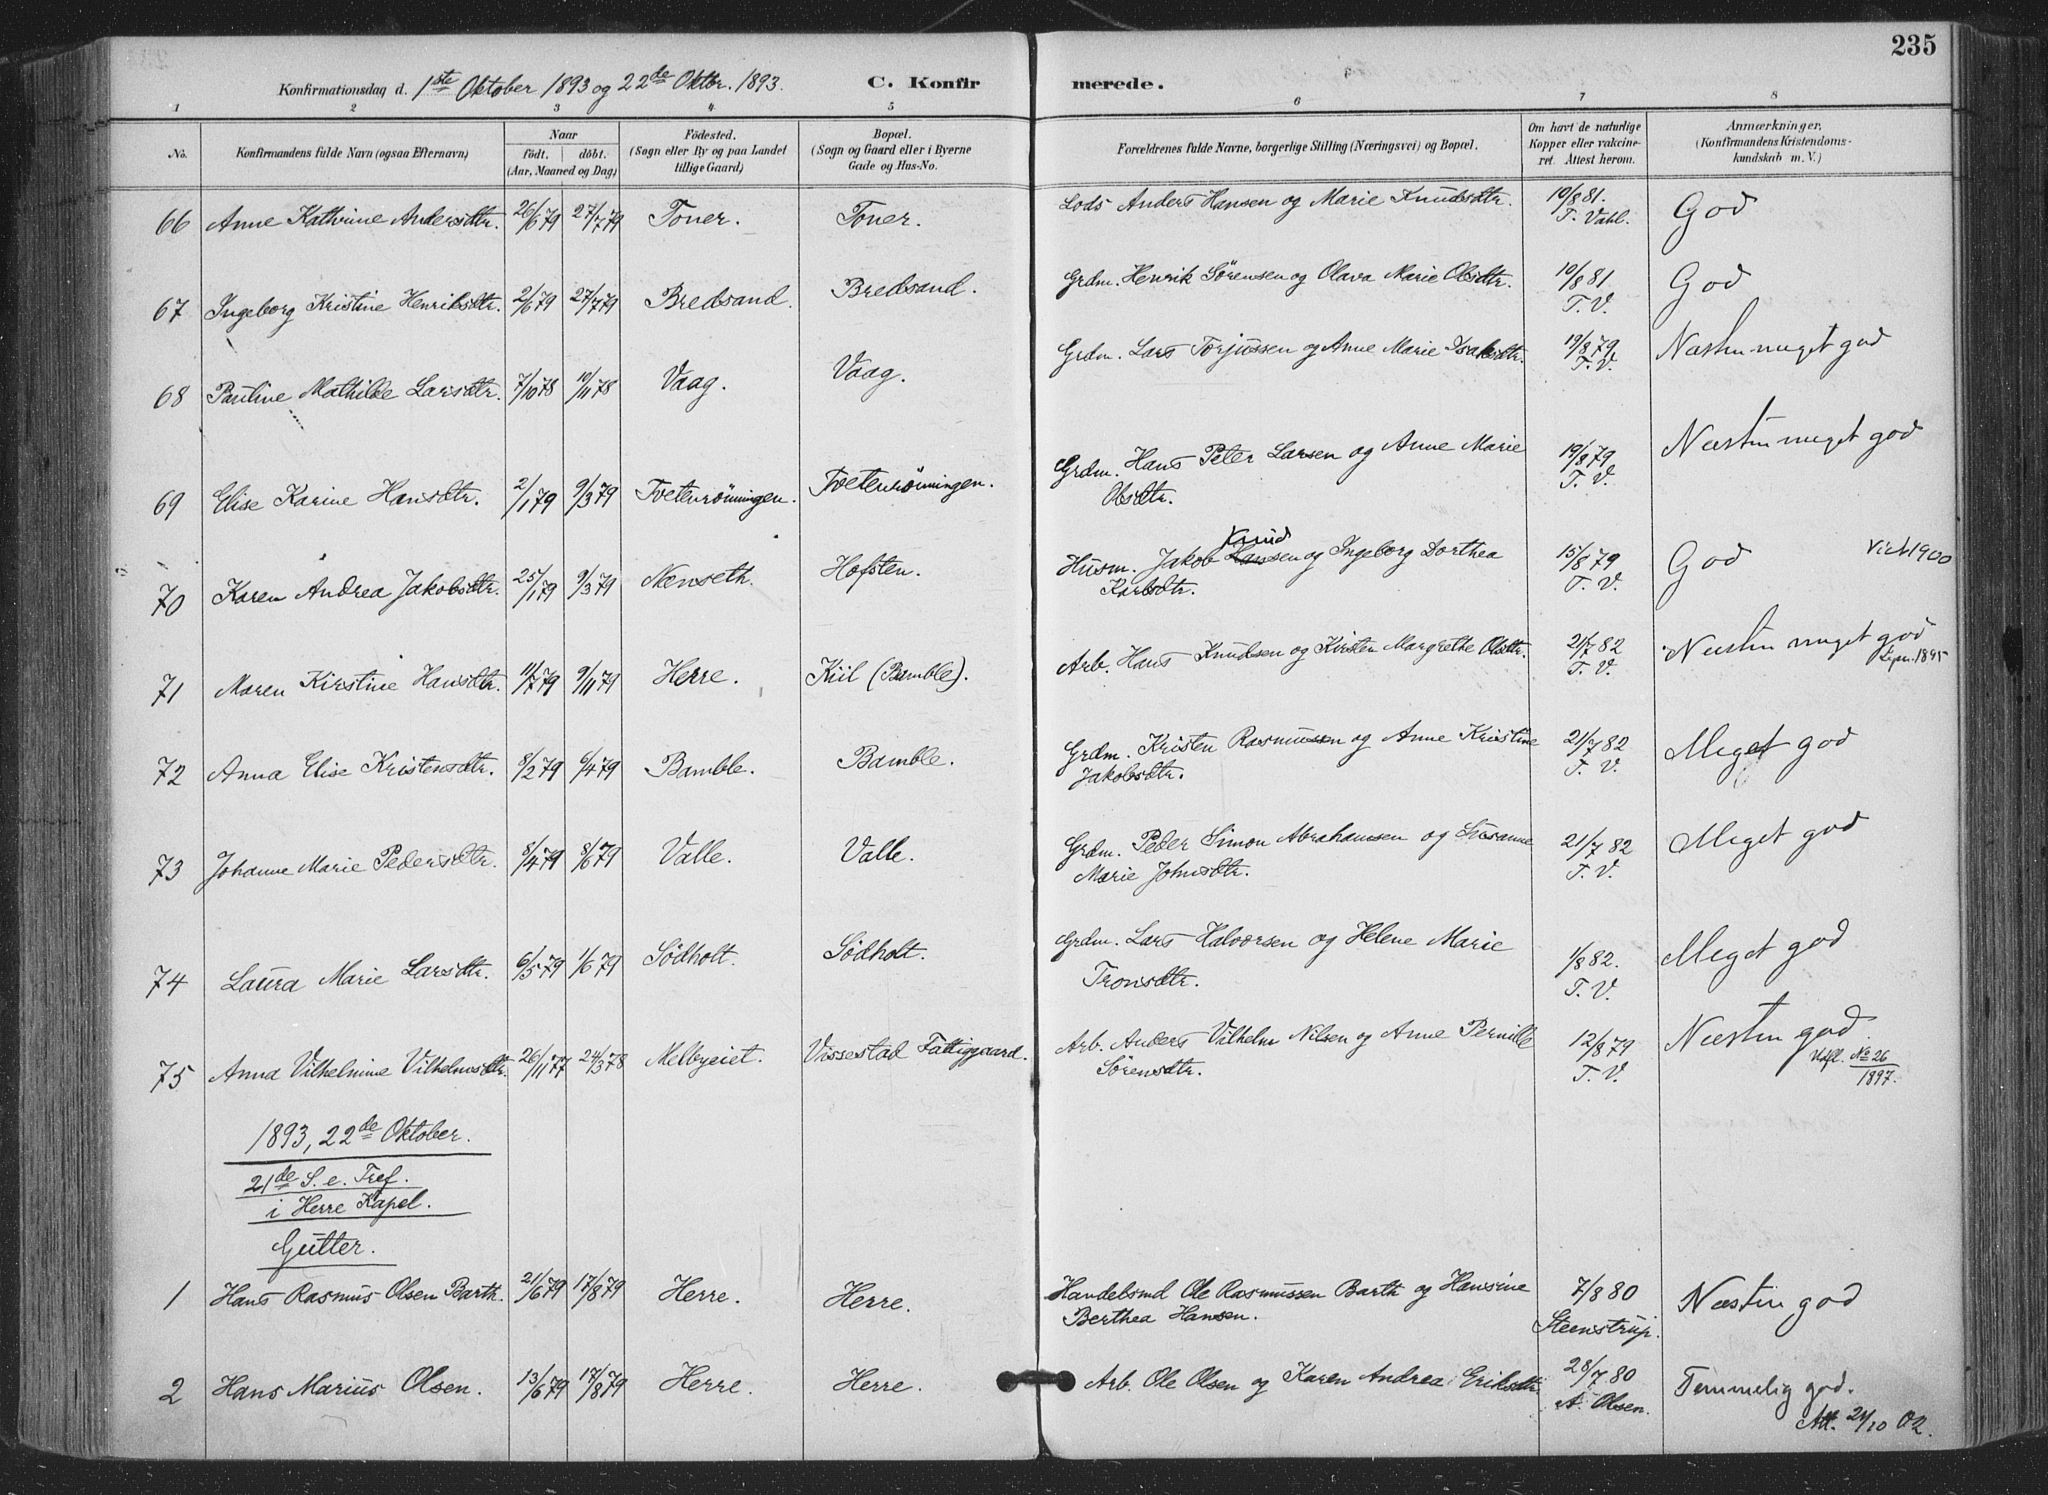 235
Konfirmationsdag d. 1ste Oktober 1893 og 22de Oktbr. 1893. C. Konfirmerede.
1 2 3 4 5 6 7 8
No. Konfirmandens fulde Navn (ogsaa Efternavn) Naar födt. döbt. (Aar, Maaned og Dag) Födested. (Sogn eller By og paa Landet tillige Gaard) Bopæl. (Sogn og Gaard eller i Byerne Gade og Hus-No. Forældrenes fulde Navne, borgerlige Stilling (Næringsvei) og Bopæl. Om havt de naturlige Kopper eller vakcineret. Attest herom. Anmærkninger. (Konfirmandens Kristendomskundskab m. V.)
66 Anne Kathrine Andersdtr. 26/6 79 27/7 79 Toner. Toner. Lods Anders Hansen og Marie Knudsdtr. 19/8 81. T. Vahl. God
67 Ingeborg Kristine Henriksdtr. 2/6 79 27/7 79 Bredsand. Bredsand. Grdm. Henrik Sørensen og Olava Marie Olsdtr. 10/8 81 T. V. God
68 Pauline Mathilde Larsdtr. 7/10 78 10/11 78 Vaag. Vaag. Grdm. Lars Torjussen og Anne Marie Isaksdtr. 19/8 79 T. V. Næsten meget god
69 Elise Karine Hansdtr. 2/1 79 9/3 79 Tvetenrönningen. Tvetenrönningen. Grdm. Hans Peter Larsen og Anne Marie
Olsdtr. 19/8 79 T. V. Næsten meget god
70 Karen Andrea Jakobsdtr. 25/1 79 9/3 79 Nenseth. Hofsten. Husm. Jakob Knudsen og Ingeborg Dorthea
Karlsdtr. 15/8 79 T. V. God 1900
71 Maren Kirstine Hansdtr. 11/7 79 9/11 79 Herre. Kiil (Bamble). Arb. Hans Knudsen og Kirsten Margrethe Olsdtr. 21/7 82 T. V. Næsten meget god 1895
72 Anna Elise Kristensdtr. 8/2 79 6/4 79 Bamble. Bamble. Grdm. Kristen Rasmussen og Anne Kristine
Jakobsdtr. 21/7 82 T. V. Meget god
73 Johanne Marie Pedersdtr. 8/4 79 8/6 79 Valle. Valle. Grdm. Peder Simon Abrahamsen og Susanne
Marie Johnsdtr. 21/7 82 T. V. Meget god
74 Laura Marie Larsdtr. 6/5 79 1/6 79 Sødholt. Sødholt. Grdm. Lars Halvorsen og Helene Marie
Tronsdtr. 1/8 82. T. V. Meget god
75 Anna Vilhelmine Vilhelmsdtr. 26/11 77 24/3 78 Melbyeiet. Vissestad Fattiggaard. Arb. Anders Vilhelm Nilsen og Anne Pernille
Sørensdtr. 12/8 79 T. V. Næsten god Udfl. No 26/1897.
1893, 22de Oktober.
21de S. e. Tref.
i Herre Kapel.
Gutter.
1 Hans Rasmus Olsen Barth. 21/6 79 17/8 79 Herre. Herre. Handelsmd Ole Rasmussen Barth og Hansine
Berthea Hansen. 7/8 80 Steenstrup. Næsten god
2 Hans Marius Olsen. 13/6 79 17/8 79 Herre. Herre. Arb. Ole Olsen og Karen Andrea Eriksdtr. 28/7 80 A. Olsen. Temmelig god.
Att. 21/10 02.